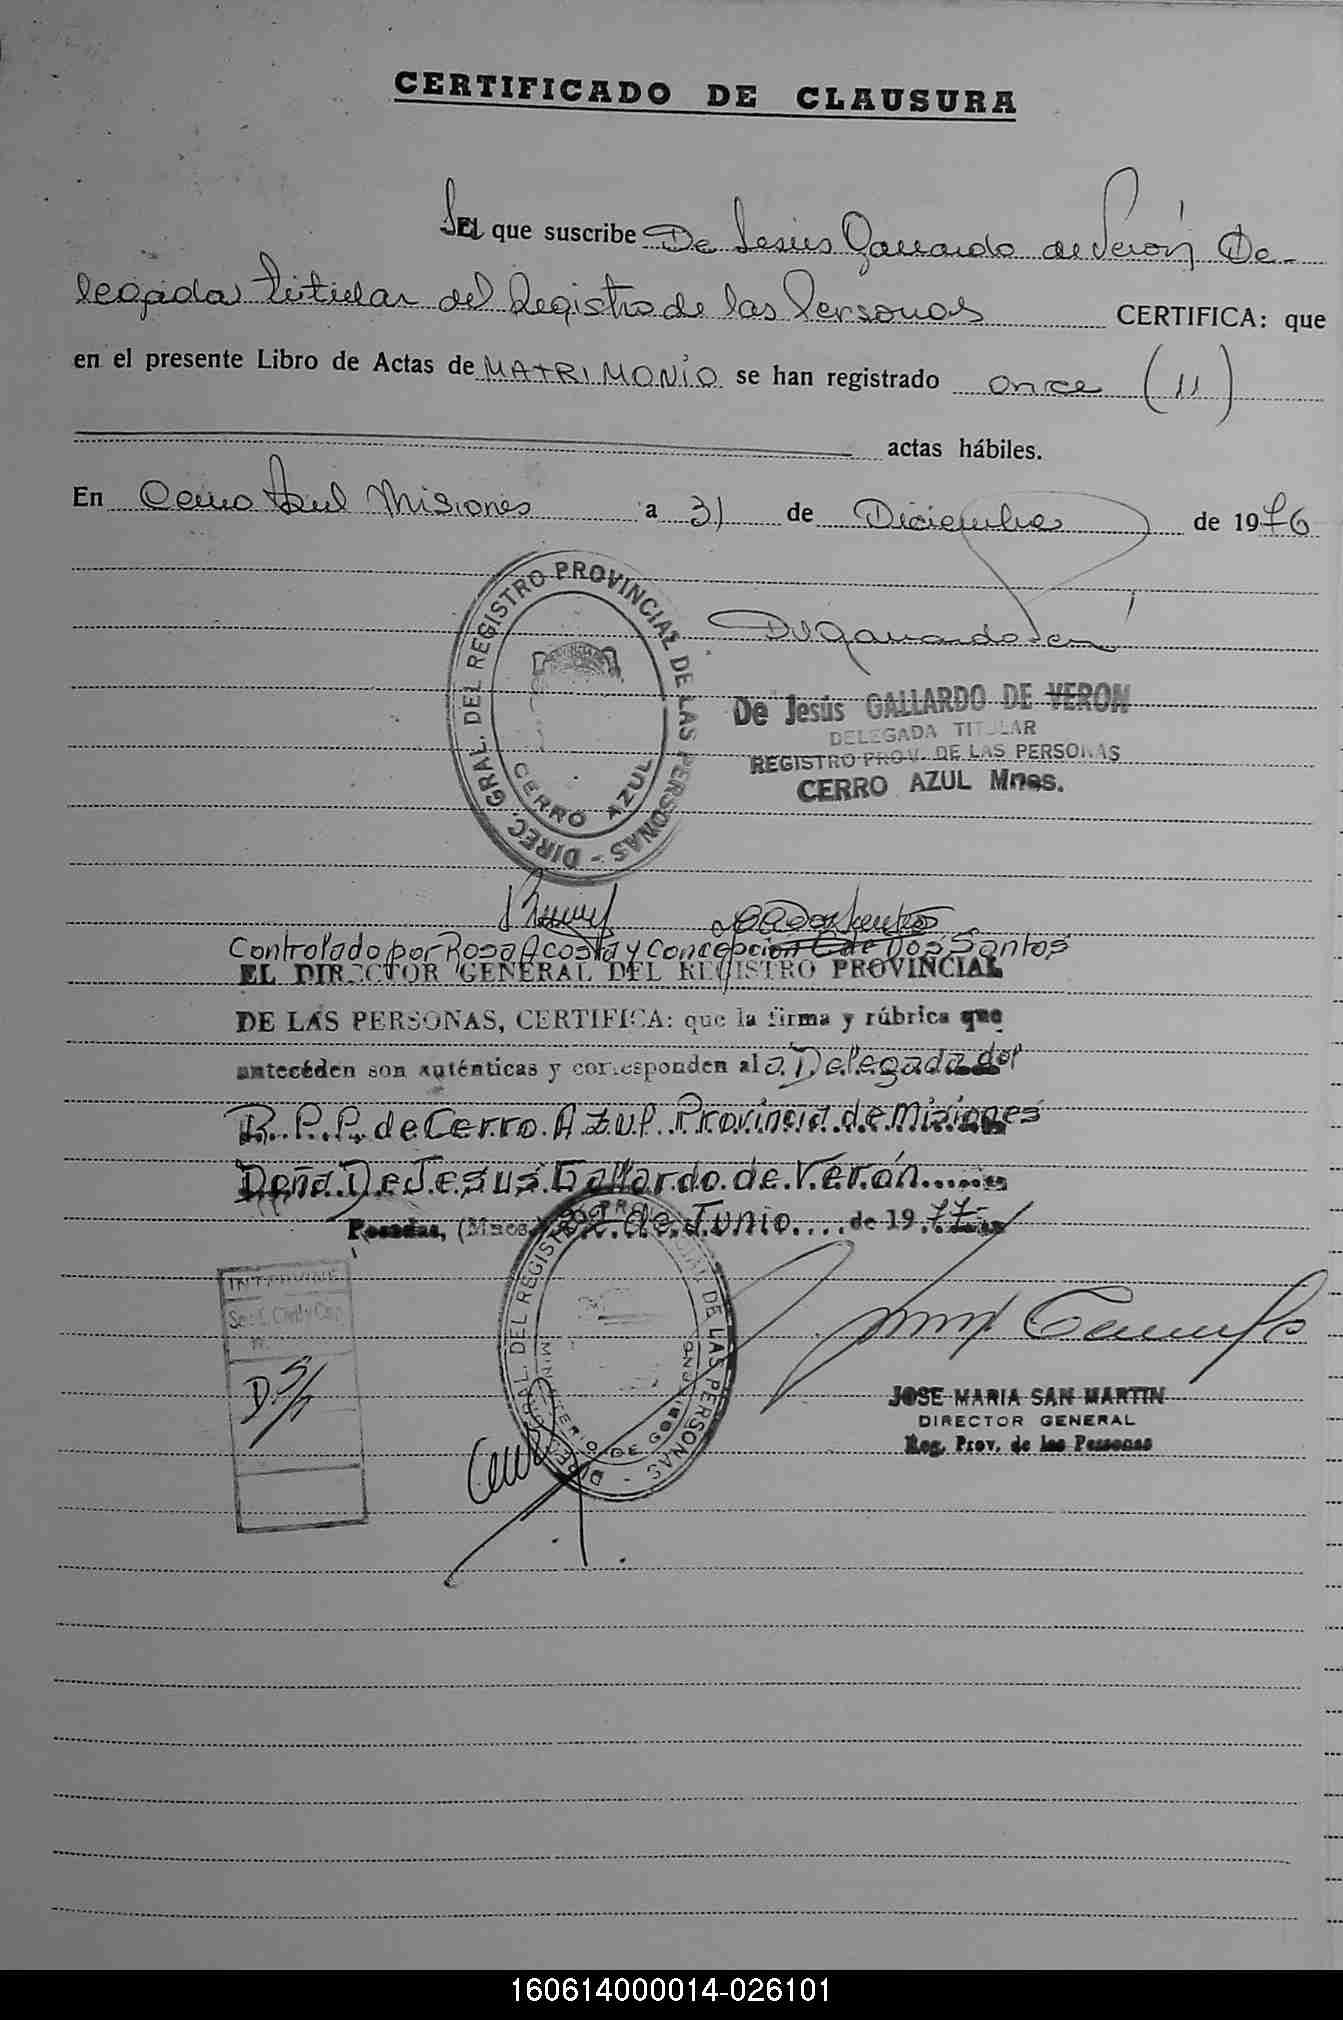 CERTIFICADO DE CLAUSURA
que suscribe De Jesús Gallardo de Verón De-
legada titular del Registro de las Personas CERTIFICA: que
en el presente Libro de Actas de MATRIMONIO se han registrado once (11)
actas hábiles.
En Cerro Azul Misiones a 31 de Diciembre de 1976
DIREC. GRAL. DEL REGISTRO PROVINCIAL DE LAS PERSONAS -
CERRO AZUL
De Jesús GALLARDO DE VERON
DELEGADA TITULAR
REGISTRO PROV. DE LAS PERSONAS
CERRO AZUL Mnes.
Controlado por Rosa Acosta y Concepcion C de Dos Santos
EL DIRECTOR GENERAL DEL REGISTRO PROVINCIAL
DE LAS PERSONAS, CERTIFICA: que la firma y rúbrica que
anteceden son auténticas y corresponden al a Delegada del
R.P.P. de Cerro Azul Provincia de Misiones
Doña De Jesus Gallardo de Verón
Posadas, (Mnes) de Junio de 1977
DIREC. GRAL. DEL REGISTRO PROVINCIAL DE LAS PERSONAS -
MINISTERIO DE GOBIERNO
INTERVINE
JOSE MARIA SAN MARTIN
DIRECTOR GENERAL
Reg. Prov. de las Personas
160614000014-026101